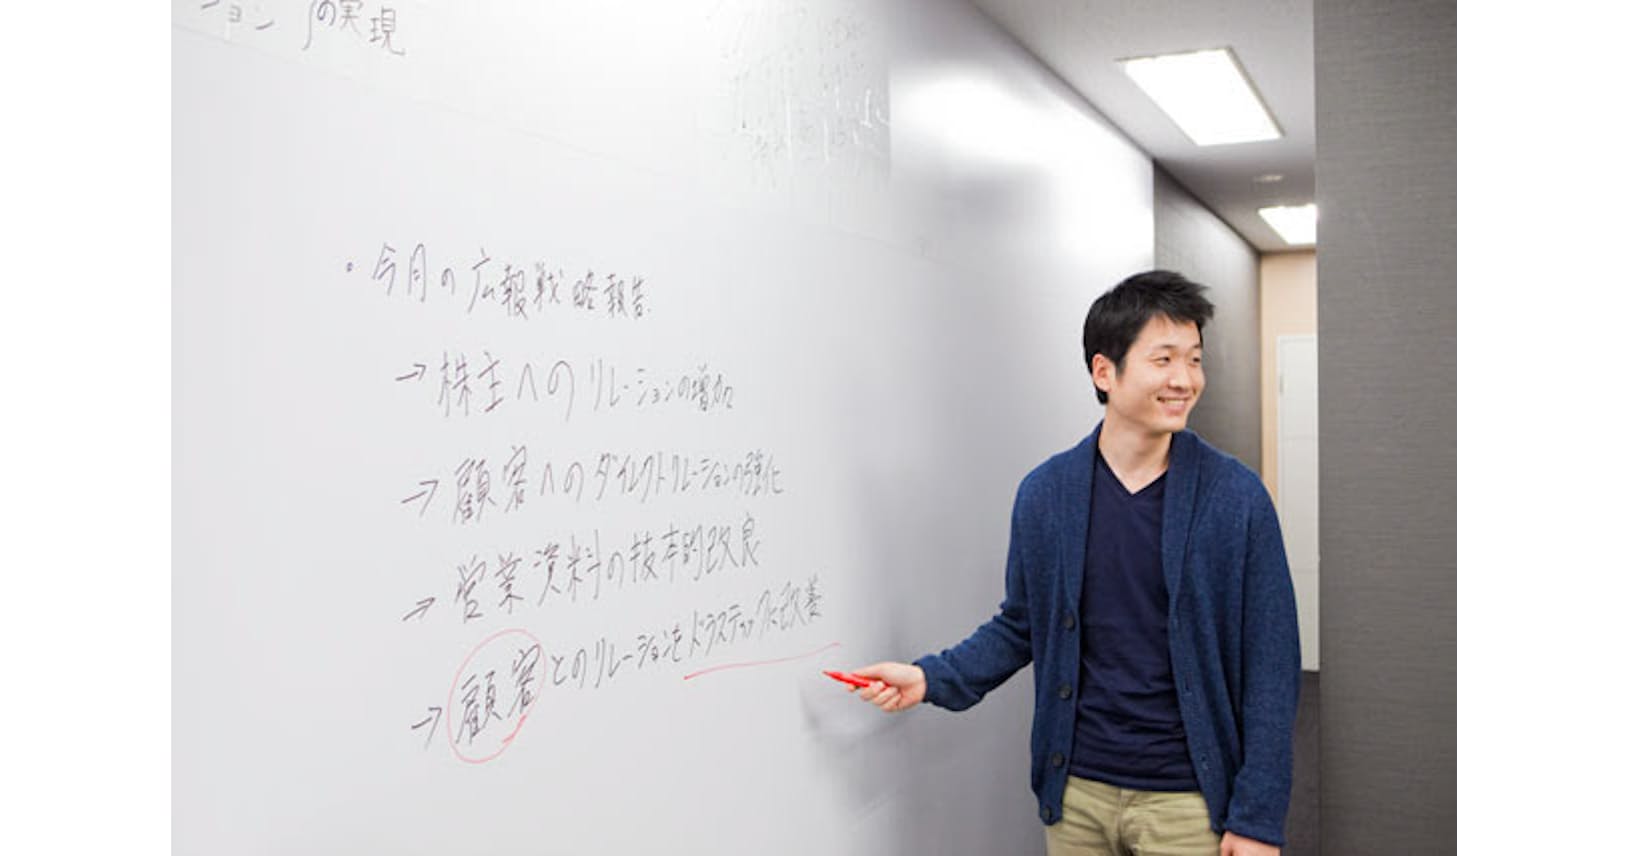 ション」の実現
・今月の広報戦略報告
→株主へのリレーションの増加
→顧客へのダイレクトリレーションの強化
→営業資料の抜本的改良
→顧客とのリレーションをドラスティックに改善